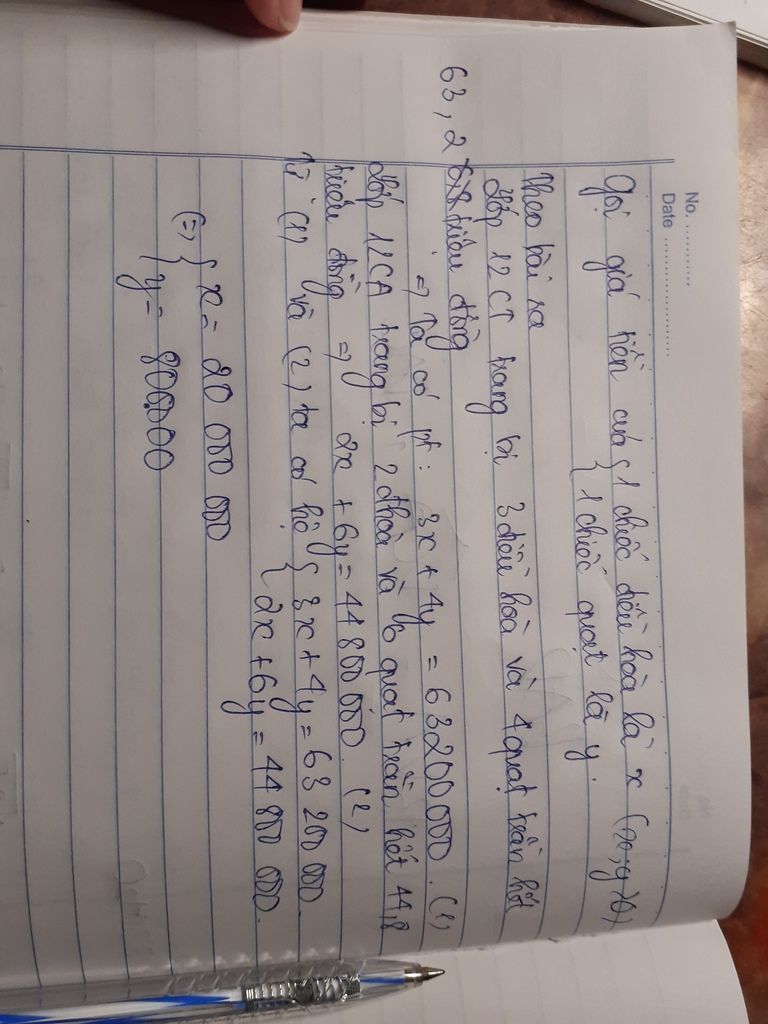 No. ............
Date ........................
Gọi giá tiền của { 1 chiếc điều hoà là x (x, y > 0)
{ 1 chiếc quạt là y.
theo bài ra
Lớp 12CT trang bị 3 điều hoà và 4 quạt trần hết
63,2 triệu đồng
=> Ta có pt: 3x + 4y = 63200000. (1)
Lớp 12CA trang bị 2 đhoà và 6 quạt trần hết 44,8
triệu đồng => 2x + 6y = 44 800 000. (2)
Từ (1) và (2) ta có hệ { 3x + 4y = 63 200 000
{ 2x + 6y = 44 800 000.
(=) { x = 20 000 000
{ y = 800.000